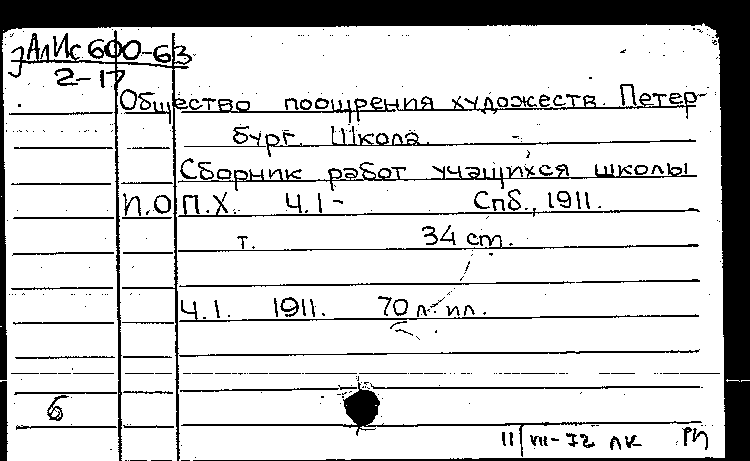 эАлИс 600-63
2-17
Общество поощрения художеств. Петер-
бург. Школа.
Сборник работ учащихся школы
И.О.П.Х. Ч.1- Спб., 1911.
т. 34 cm.
Ч.1. 1911. 70 л. ил.
6
11/VII-72 ЛК РП